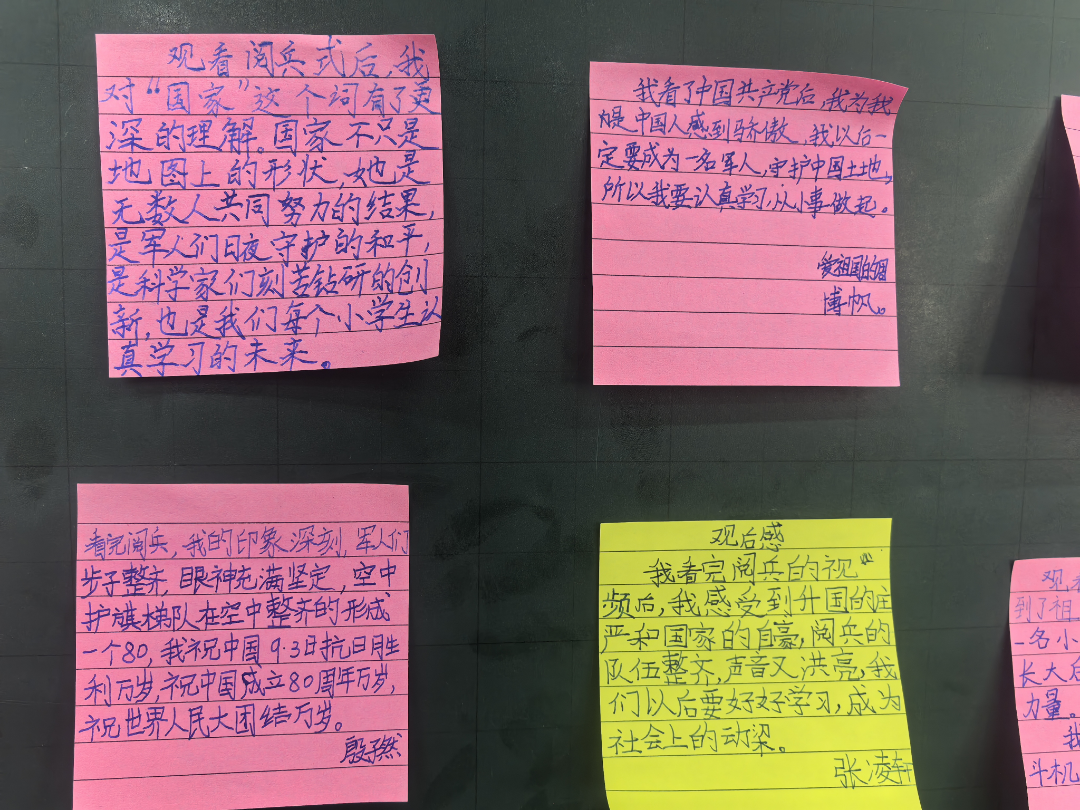 观看阅兵式后,我
对“国家”这个词有了更
深的理解。国家不只是
地图上的形状,她是
无数人共同努力的结果,
是军人们日夜守护的和平,
是科学家们刻苦钻研的创
新,也是我们每个小学生认
真学习的未来。
我看了中国共产党后,我为我
是中国人感到骄傲,我以后一
定要成为一名军人,守护中国土地,
所以我要认真学习,从小事做起。
爱祖国的
博帆。
看完阅兵,我的印象深刻,军人们
步子整齐,眼神充满坚定,空中
护旗梯队在空中整齐的形成
一个80,我祝中国9.3日抗日胜
利万岁,祝中国成立80周年万岁,
祝世界人民大团结万岁。
殷子然
观后感
我看完阅兵的视
频后,我感受到升国的庄
严和国家的自豪,阅兵的
队伍整齐,声音又洪亮,我
们以后要好好学习,成为
社会上的动梁。
张凌轩
观
到了祖
一名小
长大后
力量。
我
斗机